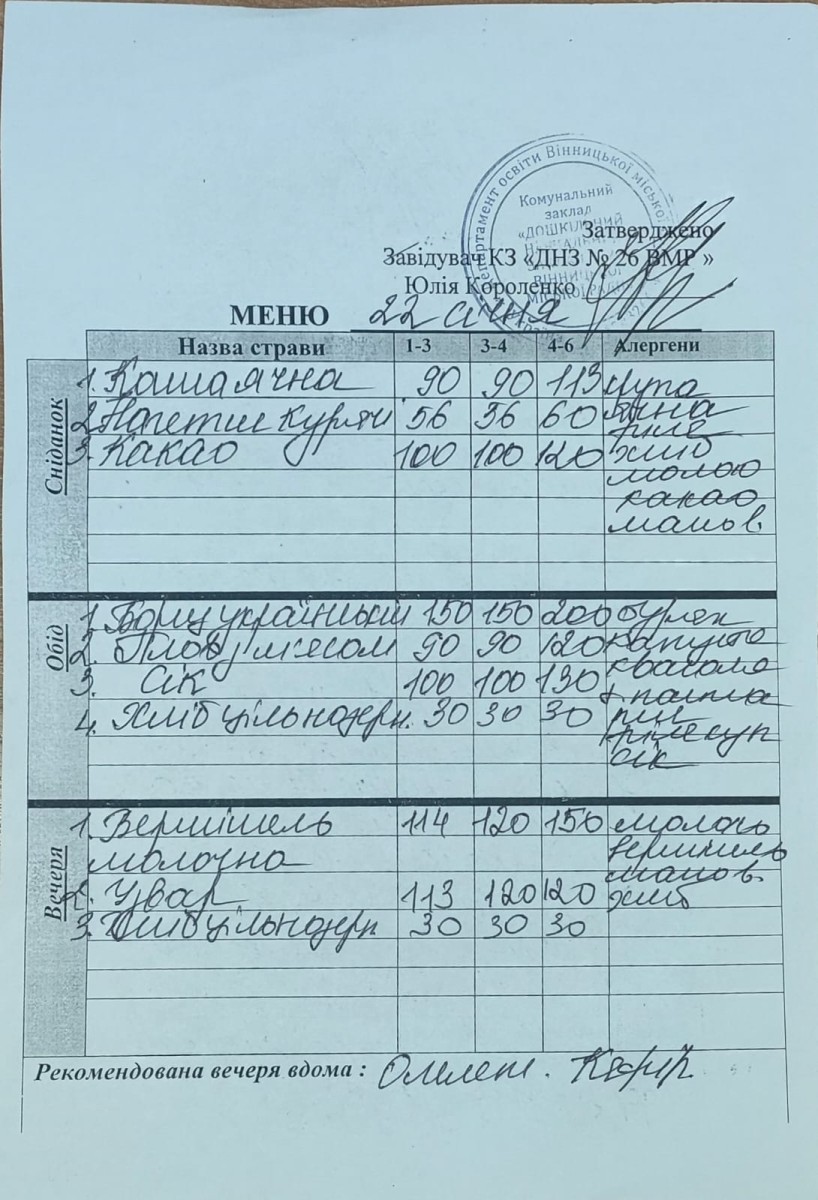 Департамент освіти Вінницької міської
Комунальний
заклад
«ДОШКІЛЬНИЙ
Затверджено
Завідувач КЗ «ДНЗ № 26 ВМР »
Юлія Короленко
МЕНЮ 22 січня
Назва страви 1-3 3-4 4-6 Алергени
Сніданок
1. Каша ячна 90 90 113 крупа
2. Нагетси курячі 56 56 60 ячна
3. Какао 100 100 120 хліб
молоко
какао
маслов.
Обід
1. Борщ український 150 150 200 буряк
2. Плов з м'ясом 90 90 120 капуста
3. Сік 100 100 130 квасоля
4. Хліб цільнозерн. 30 30 30
сік
Вечеря
1. Вермішель 114 120 150 молоко
молочна вермішель
маслов.
2. Узвар 113 120 120 хліб
3. Хліб цільнозерн 30 30 30
Рекомендована вечеря вдома : Омлет. Кефір.